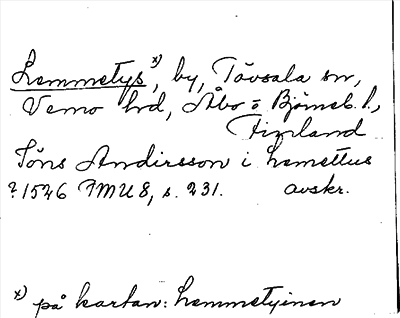 Lemmetys x), by, Tövsala sn,
Vemo hrd, Åbo o Björneb. l.,
Finland
Jöns Andirsson i Lemettus
?1546 FMU 8, s. 231. avskr.
x) på kartan: Lemmetyinen